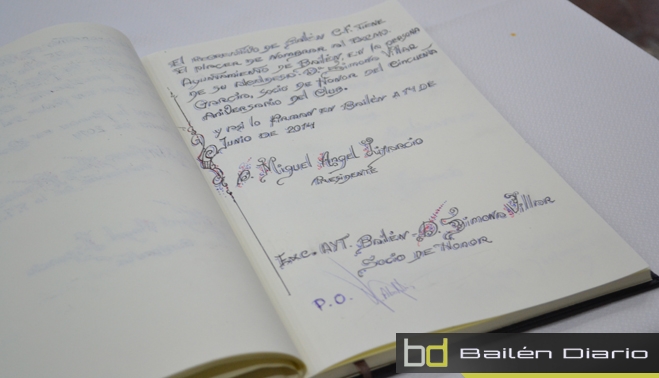 El Recreativo de Bailén C.F. tiene
el placer de nombrar al Excmo.
Ayuntamiento de Bailén, en la persona
de su Alcaldesa Dª Simona Villar
García, Socio de Honor del Cincuenta
Aniversario del Club.
y así lo firman en Bailén a 14 de
Junio de 2014
D. Miguel Angel
Presidente
Exc. AYT. Bailén - D. Simona Villar
Socio de Honor
P.O.
bd Bailén Diario